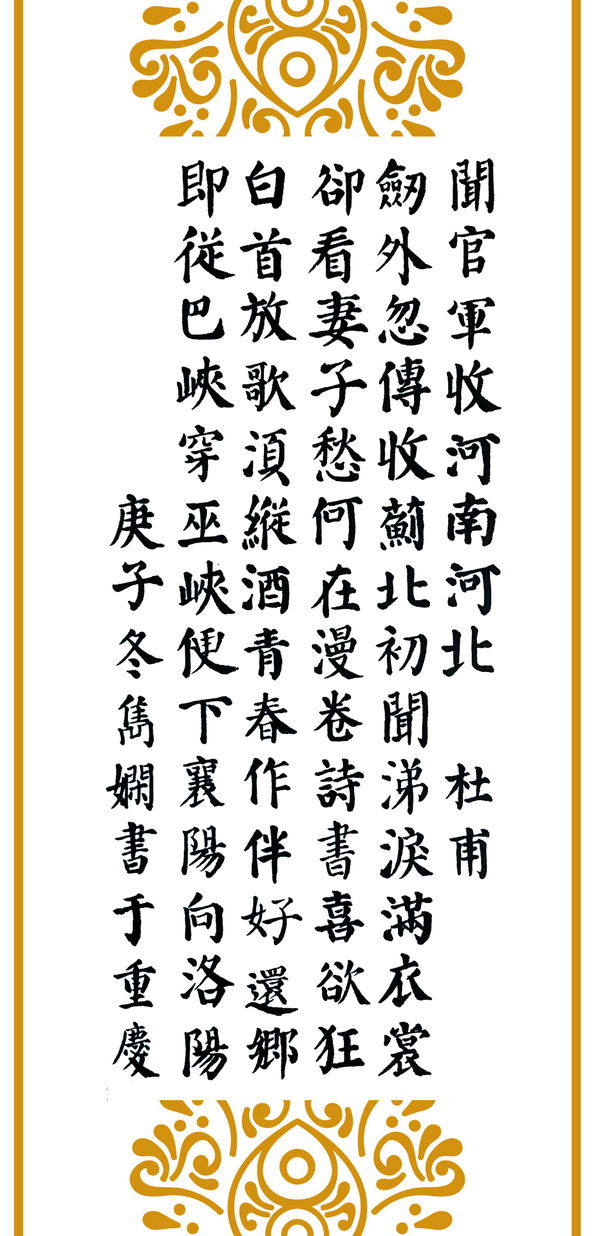 聞官軍收河南河北 杜甫
劒外忽傳收薊北初聞涕淚滿衣裳
卻看妻子愁何在漫卷詩書喜欲狂
白首放歌須縱酒青春作伴好還鄉
即從巴峽穿巫峽便下襄陽向洛陽
庚子冬雋嫻書于重慶